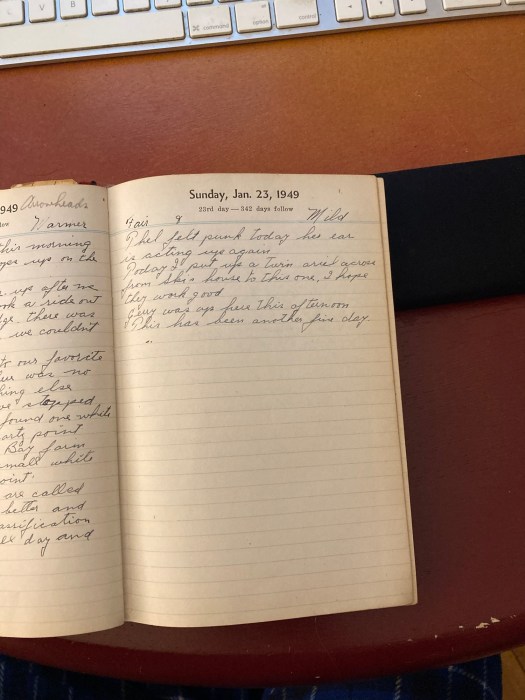 command
option
control
1949 Arrowheads
Warmer
this morning
up on the
up after me
a ride out
there was
we couldn't
to our favorite
was no
thing else
we stopped
found one white
point
Bay farm
small white
point.
are called
better and
classification
day and
Sunday, Jan. 23, 1949
22rd day — 342 days follow
Fair 9 Mild
Thel felt punk today her ear
is acting up again
Today I put up a turn across
from Skis house to this one, I hope
they work good
was up here this afternoon
This has been another fine day.